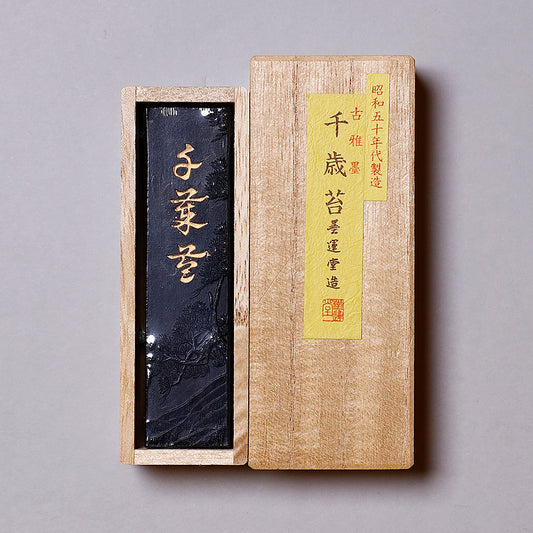 昭和五十年代製造
古雅墨
千歳苔
墨運堂造
千歳苔